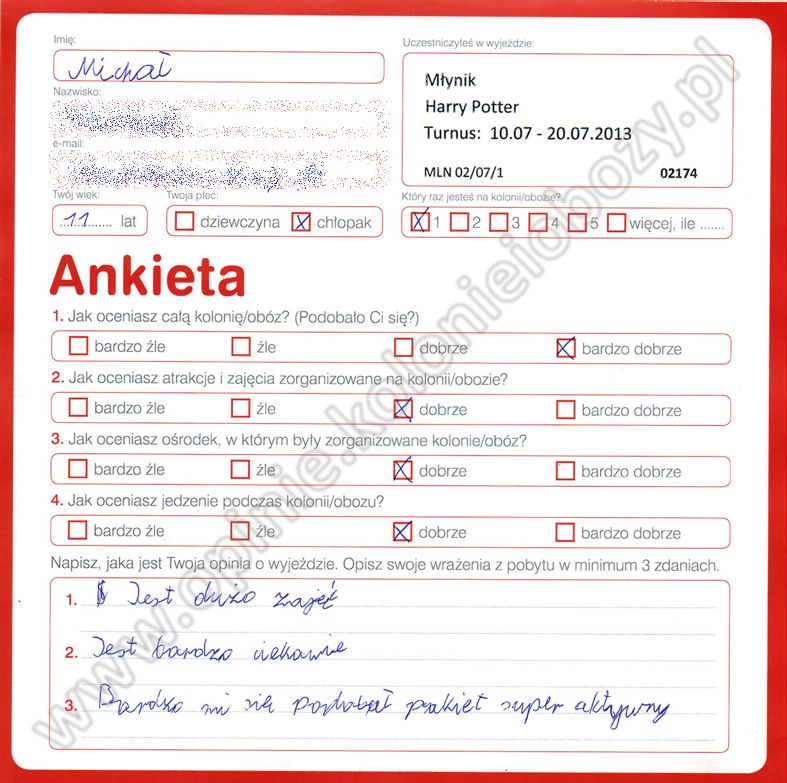 Imię:
Uczestniczyłeś w wyjeździe:
Michał
Młynik
Nazwisko:
Harry Potter
Turnus: 10.07 - 20.07.2013
e-mail:
MLN 02/07/1 02174
Twój wiek: Twoja płeć: Który raz jesteś na kolonii/obozie?
11 lat dziewczyna X chłopak X 1 2 3 4 5 więcej, ile .......
Ankieta
1. Jak oceniasz całą kolonię/obóz? (Podobało Ci się?)
bardzo źle źle dobrze X bardzo dobrze
2. Jak oceniasz atrakcje i zajęcia zorganizowane na kolonii/obozie?
bardzo źle źle X dobrze bardzo dobrze
3. Jak oceniasz ośrodek, w którym były zorganizowane kolonie/obóz?
bardzo źle źle X dobrze bardzo dobrze
4. Jak oceniasz jedzenie podczas kolonii/obozu?
bardzo źle źle X dobrze bardzo dobrze
Napisz, jaka jest Twoja opinia o wyjeździe. Opisz swoje wrażenia z pobytu w minimum 3 zdaniach.
1. Jest dużo zajęć
2. Jest bardzo ciekawie
3. Bardzo mi się podobał pakiet super aktywny
www.opinie.kolonieiobozy.pl